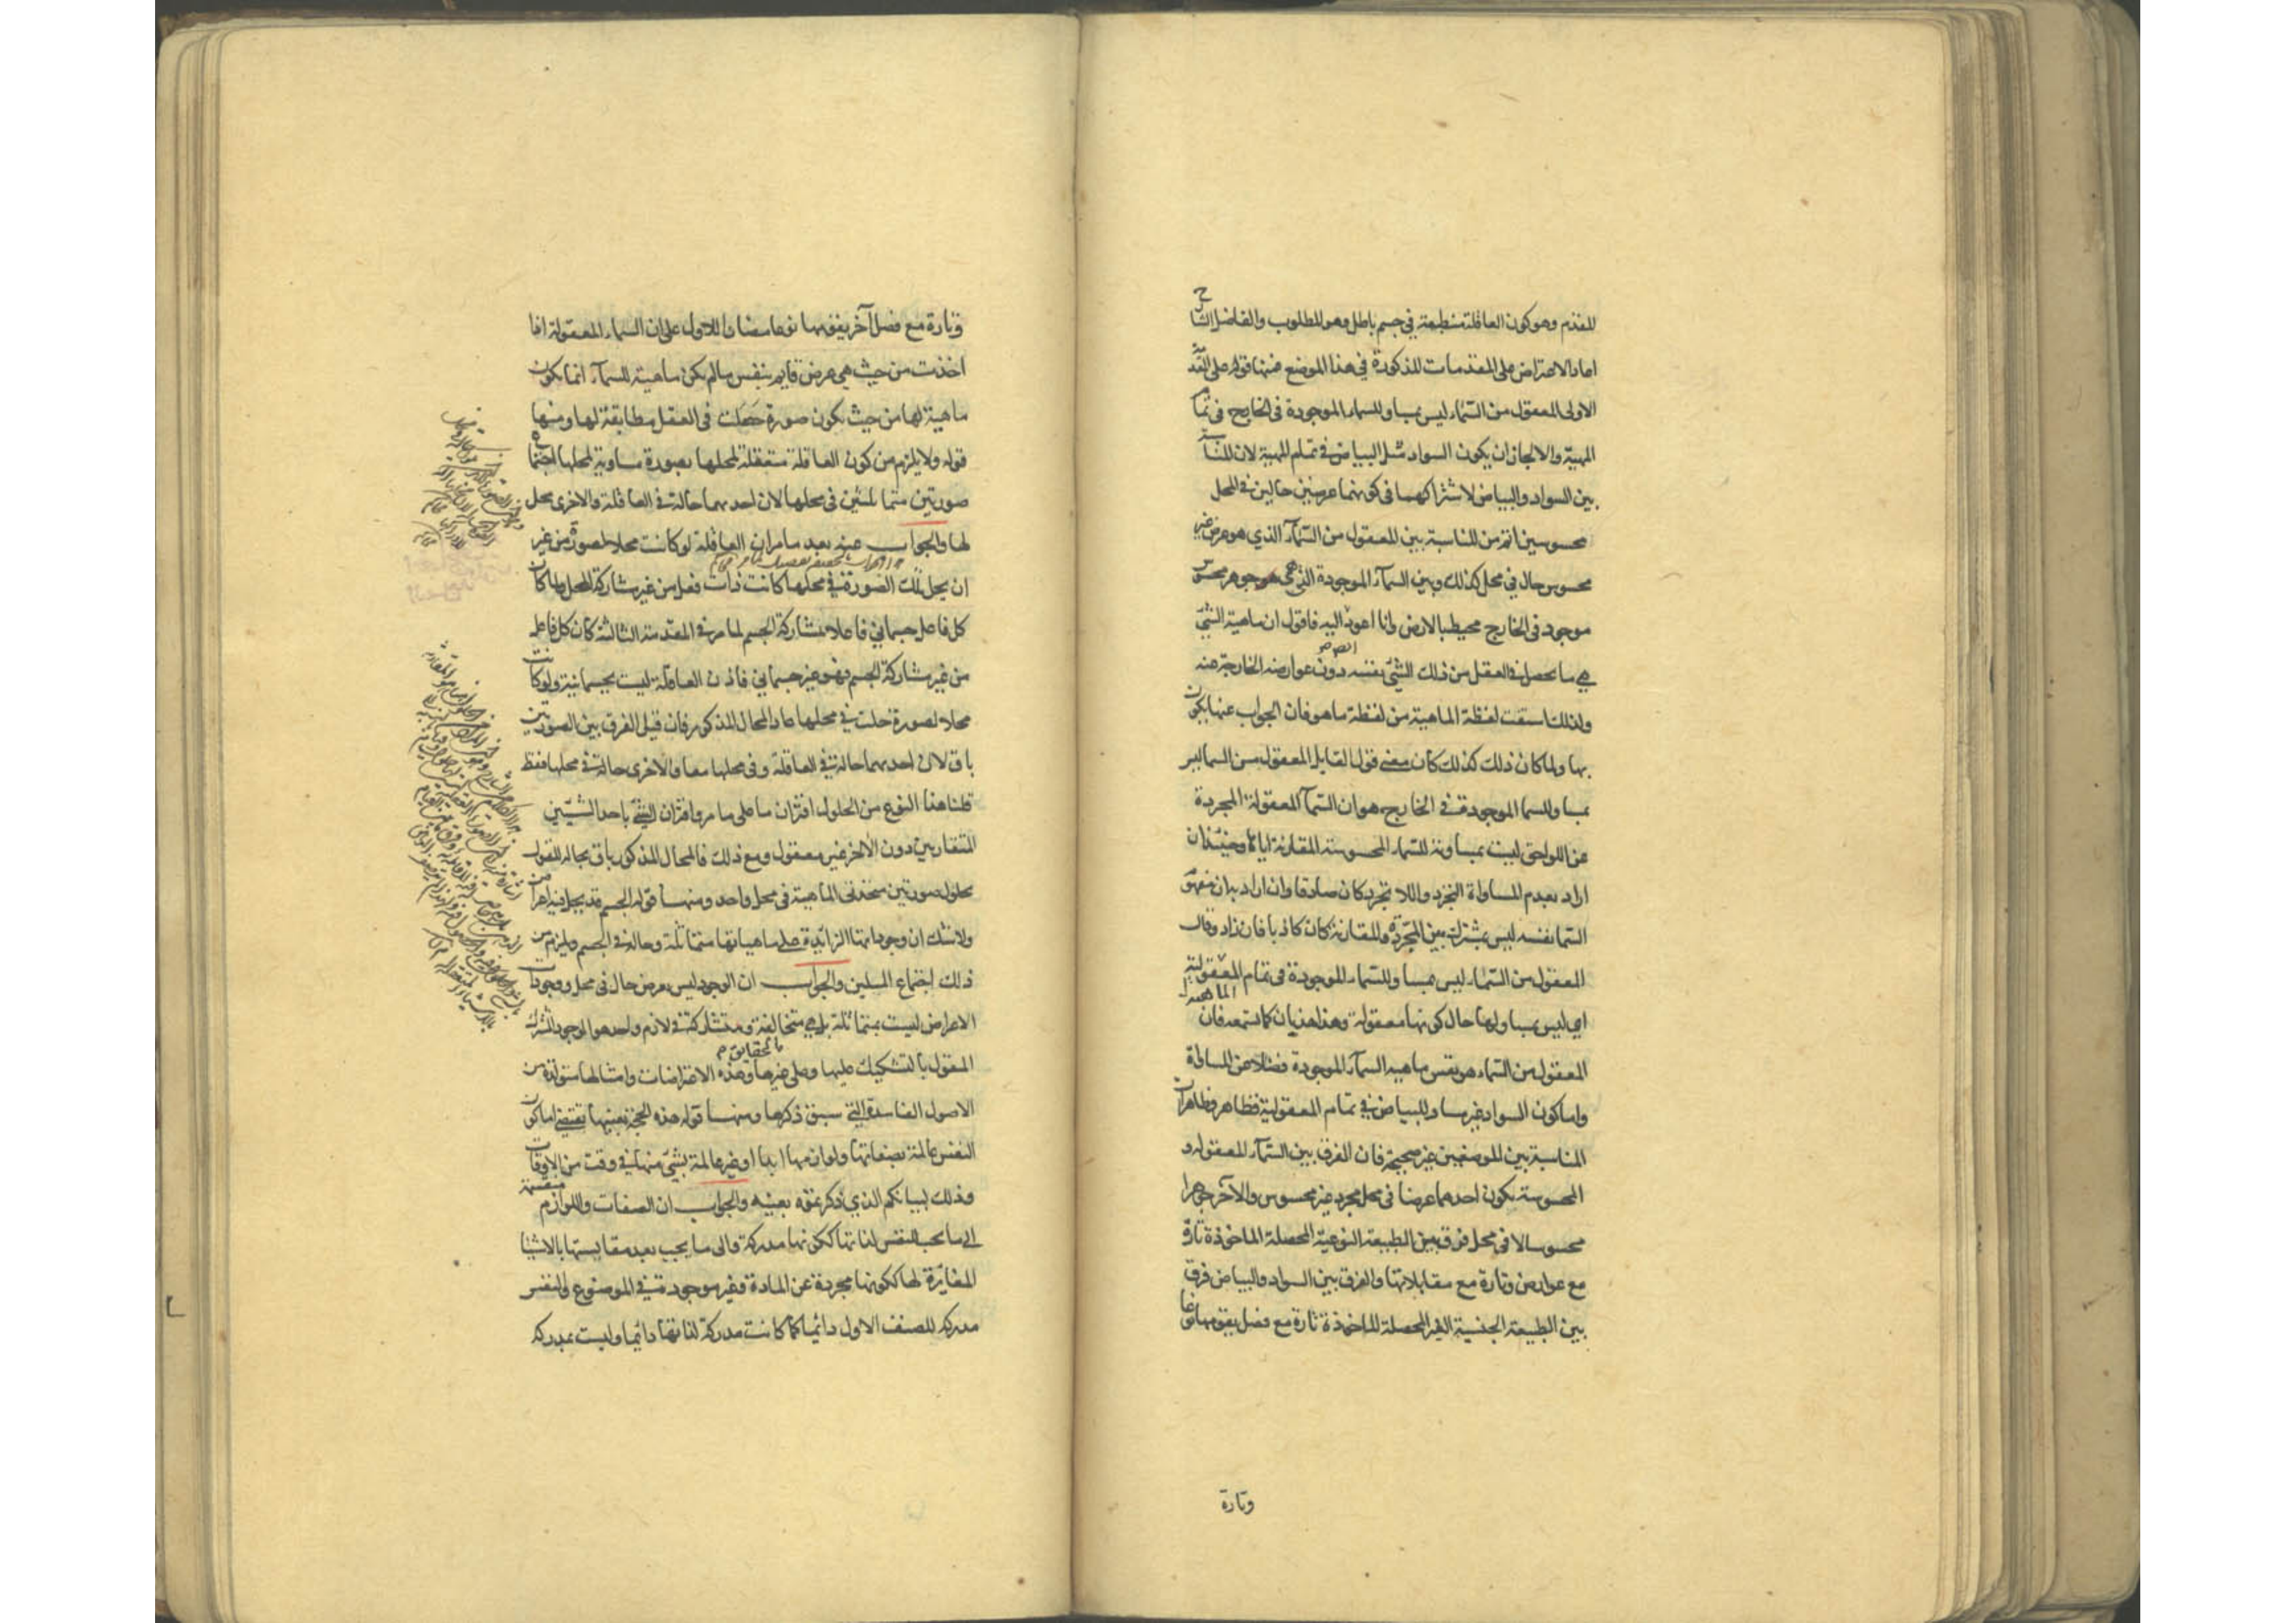 للمقدم وهو كون العاقلة منطبعة في جسم باطل وهو المطلوب والفاضل الشارح
اعاد الاعتراض على المقدمات المذكورة في هذا الموضع فمنها قوله على المقدمة
الاولى المعقول من السماء ليس بمساو للسماء الموجودة في الخارج في تمام
المهية والا لجاز ان يكون السواد مثل البياض في تمام المهية لان المناسبة
بين السواد والبياض لاشتراكهما في كونهما عرضين حالين في المحل
محسوسين اتم من المناسبة بين المعقول من السمآء الذي هو عرض غير
محسوس حال في محل كذلك وبين السمآء الموجودة التي هي جوهر محسوس
موجود في الخارج محيط بالارض وانا اعود اليه فاقول ان ماهية الشئ
هي ما يحصل في العقل من ذلك الشئ نفسه دون عوارضه الخارجة عنه
ولذلك اشتقت لفظة الماهية من لفظة ما هو فان الجواب عنها يكون
بها ولما كان ذلك كذلك كان معنى قول القايل المعقول من السما ليس
بمساو للسما الموجودة في الخارج هو ان السمآء المعقولة المجردة
عن اللواحق ليست بمساوية للسماء المحسوسة المقارنة اياها وحينئذ ان
اراد بعدم المساواة التجرد واللا تجرد كان صادقا وان اراد به ان مفهوم
السما نفسه ليس بمشترك بين المجردة والمقارنة كان كاذبا فان زاد وقال
المعقول من السماء ليس بمساو للسماء الموجودة في تمام المعقولية
الماهية
اي ليس بمساو لها حال كونها معقولة وهذا هذيان كما تسمعه فان
المعقول من السماء هو نفس ماهية السمآء الموجودة فضلا عن المساواة
واما كون السواد غير مساو للبياض في تمام المعقولية فظاهر فظاهر ان
المناسبة بين الموضعين غير صحيحة فان الفرق بين السمآء المعقولة و
المحسوسة بكون احدهما عرضا في محل مجرد غير محسوس والآخر جوهرا
محسوسا لا في محل فرق بين الطبيعة النوعية المحصلة الماخوذة تارة
مع عوارض وتارة مع مقابلاتها والفرق بين السواد والبياض فرق
بين الطبيعة الجنسية الغير المحصلة الماخوذة تارة مع فصل يقومها نوعا
وتارة
وتارة مع فصل آخر يقومها نوعا مضادا للاول على ان السماء المعقولة اذا
اخذت من حيث هي عرض قايم بنفس ما لم يكن ماهية للسمآء انما يكون
ماهية لها من حيث يكون صورة حصلت في العقل مطابقة لها ومنها
قوله ولا يلزم من كون العاقلة متعقلة لمحلها بصورة مساوية لمحلها اجتماع
صورتين متماثلتين في محلها لان احدهما حالة في العاقلة والاخرى محل
لها والجواب عنه بعد ما مر ان العاقلة لو كانت محلا لصورة من غير
ان يحل تلك الصورة في محلها كانت ذات فعل من غير مشاركة المحل ولما كان
كل فاعل جسماني فاعلا بمشاركة الجسم لما مر في المقدمة الثالثة كان كل فاعل
من غير مشاركة الجسم فهو غير جسماني فاذن العاقلة ليست بجسمانية ولو كانت
محلا لصورة حلت في محلها عاد المحال المذكور فان قيل الفرق بين الصورتين
باق لان احدهما حالة في العاقلة وفي محلها معا والاخرى حالة في محلها فقط
قلنا هذا النوع من الحلول اقتران ما على ما مر واقتران الشئ باحد الشيئين
المتقارنين دون الآخر غير معقول ومع ذلك فالمحال المذكور باق بحاله للقول
بحلول صورتين متحدتي الماهية في محل واحد ومنها قوله الجسم قد يحل فيه اعراض
ولا شك ان وجوداتها الزائدة على ماهياتها متماثلة وحالة في الجسم ويلزم من
ذلك اجتماع المثلين والجواب ان الوجود ليس بعرض حال في محل ووجودات
الاعراض ليست بمتماثلة بل هي متخالفة ومتشاركة في لازم واحد هو الوجود المشترك
بالحقايق م
المقول بالتشكيك عليها وعلى غيرها وهذه الاعتراضات وامثالها متولدة من
الاصول الفاسدة التي سبق ذكرها ومنها قوله هذه الحجة بعينها تقتضي اما كون
النفس عالمة بصفاتها ولوازمها ابدا او غير عالمة بشئ منها في وقت من الاوقات
وذلك لبيانكم الذي ذكرتموه بعينه والجواب ان الصفات واللوازم منقسمة
الى ما يجب للنفس لذاتها ككونها مدركة والى ما يجب بعد مقايستها بالاشيا
المغايرة لها ككونها مجردة عن المادة وغير موجودة في الموضوع والنفس
مدركة للصنف الاول دائما كما كانت مدركة لذاتها دائما وليست بمدركة